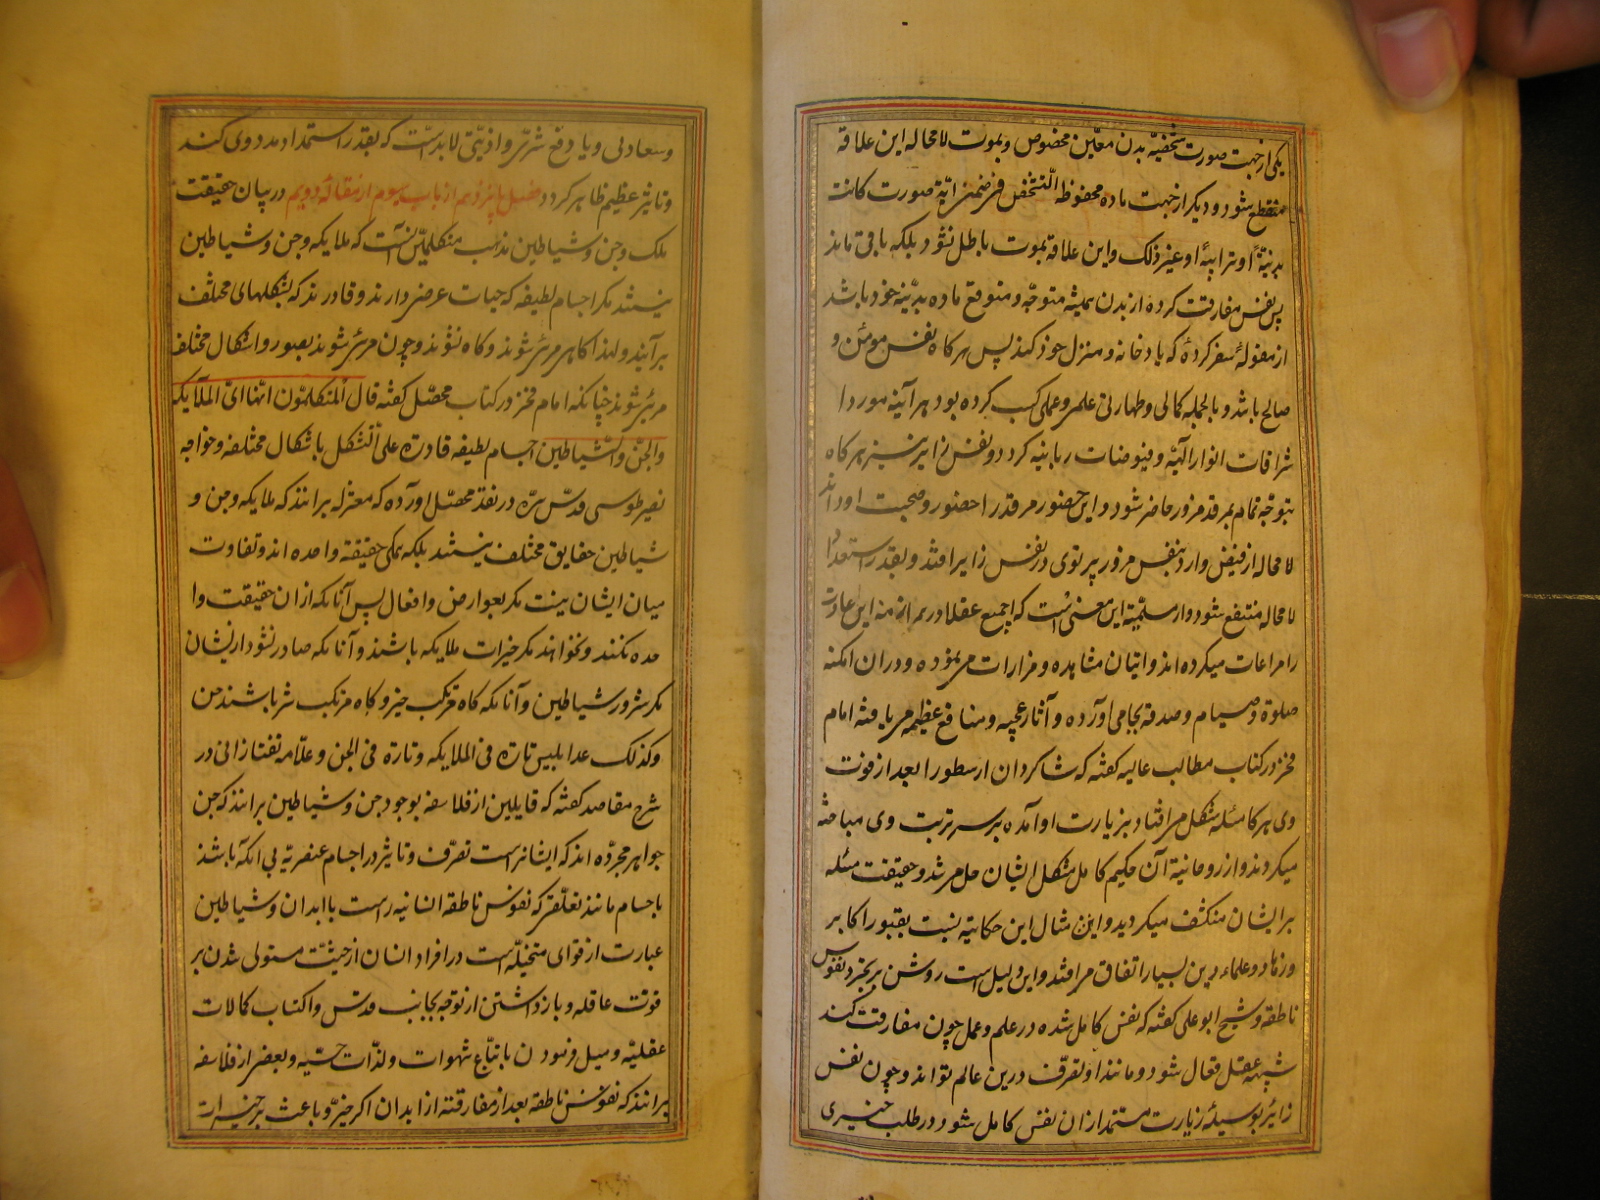 یکی از جهت صورت شخصیّه بدن معیّن مخصوص و بموت لا محاله این علاقه
منقطع بشود و دیگر از جهت ماده محفوظه التشخص فی ضمن ایّة صورت کانت
بدنیّة او ترابیّة او غیر ذلک و این علاقه بموت باطل نشود بلکه باقی ماند
پس نفس مفارقت کرده از بدن همیشه متوجّه و متوقع ماده بدنیّه خود باشد
از مقوله سفر کرده که یاد خانه و منزل خود کند پس هر کاه نفس مومن و
صالح باشد و بالجمله کمالی و طهارتی علمی و عملی کسب کرده بود هر آینه مورد ا
شراقات انوار الهیّه و فیوضات ربانیه کردد و نفس زایر نیز هر کاه
بتوجّه تمام بمرقد مزور حاضر شود و این حضور مرقد را حضور و صحبت او داند
لا محاله از فیض وارد بنفس مزور پرتوی در نفس زایر افتد و بقدر استعداد
لا محاله منتفع شود و از سلمیّه این معنی است که جمیع عقلا در هر ازمنه این عادت
را مراعات میکرده اند و اتیان مشاهده و مزارات می نموده و در ان امکنه
صلوة و صیام و صدقه بجا می آورده و آثار عجیبه و منافع عظیمه می یافته امام
فخر در کتاب مطالب عالیه کفته که شاکردان ارسطو را بعد از فوت
وی هر کا مسئله مشکل می افتاد بزیارت او آمده بر سر تربت وی مباحثه
میکردند و از روحانیة آن حکیم کامل مشکل ایشان حل می شد و حقیقت مسئله
بر ایشان منکشف میکردید و این مثال این حکایة نسبت بقبور اکابر
و زهاد و علماء دین بسیار اتفاق می افتد و این دلیل است روشن بر تجرد نفوس
ناطقه و شیخ ابو علی کفته که نفس کامل شده در علم و عمل چون مفارقت کند
شبیه عقل فعال شود و مانند او تصرف درین عالم تواند و چون نفس
زائر بوسیله زیارت مستمد از ان نفس کامل شود و در طلب خیری
و سعادتی و یا دفع شری و اذیّتی لابد است که بقدر استمداد مدد وی کند
و تاثیر عظیم ظاهر کردد فصل پانزدهم از باب سوم از مقاله دویم در بیان حقیقت
ملک و جن و شیاطین مذهب متکلمین آنست که ملایکه و جن و شیاطین
نیستند مکر اجسام لطیفه که حیات عرضی دارند و قادرند که بشکلهای مختلف
برآیند و لهذا کاهی مرئی شوند و کاه نشوند و چون مرئی شوند بصور و اشکال مختلف
مرئی شوند چنانکه امام فخر در کتاب محصّل کفته قال المتکلمون انّها ای الملایکه
و الجن و الشیاطین اجسام لطیفه قادرة علی التشکل باشکال مختلفه و خواجه
نصیر طوسی قدّس سرّه در نقد محصّل آورده که معتزله برانند که ملایکه و جن و
شیاطین حقایق مختلف نیستند بلکه همکی حقیقة واحده اند و تفاوت
میان ایشان نیست مکر بعوارض و افعال پس آنانکه از ان حقیقت وا
حده نکنند و نخواهند مکر خیرات ملایکه باشند و آنانکه صادر نشود از ایشان
مکر شرور شیاطین و آنانکه کاه مرتکب خیر و کاه مرتکب شر باشند جن
و کذلک عد ابلیس تارة فی الملایکه و تارة فی الجن و علّامه تفتازانی در
شرح مقاصد کفته که قایلین از فلاسفه بوجود جن و شیاطین برانند که جن
جواهر مجرّده اند که ایشانراست تصرّف و تاثیر در اجسام عنصریّه بی آنکه باشد
باجسام مانند تعلّقی که نفوس ناطقه انسانیه راست بابدان و شیاطین
عبارت از قوای متخیله است در افراد انسان از حیثت مستولی شدن بر
قوّت عاقله و بازداشتن از توجه بجانب قدس و اکتساب کمالات
عقلیّه و میل فرمودن باتباع شهوات و لذّات حسّیه و بعضی از فلاسفه
برانند که نفوس ناطقه بعد از مفارقته از ابدان اکر خیّر و باعث بر خیرات